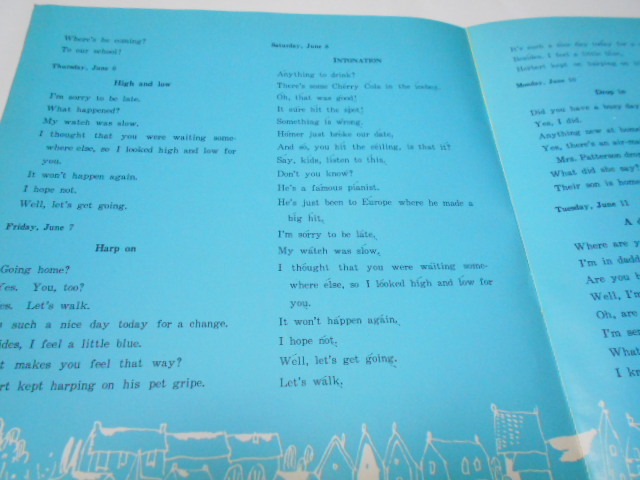 Where's he coming?
To our school?
Thursday, June 6
High and low
I'm sorry to be late.
What happened?
My watch was slow.
I thought that you were waiting some-
where else, so I looked high and low for
you.
It won't happen again.
I hope not.
Well, let's get going.
Friday, June 7
Harp on
Going home?
Yes. You, too?
es. Let's walk.
s such a nice day today for a change.
ides, I feel a little blue.
t makes you feel that way?
rt kept harping on his pet gripe.
Saturday, June 8
INTONATION
Anything to drink?
There's some Cherry Cola in the icebox.
Oh, that was good!
It sure hit the spot!
Something is wrong.
Homer just broke our date.
And so, you hit the ceiling, is that it?
Say, kids, listen to this.
Don't you know?
He's a famous pianist.
He's just been to Europe where he made a
big hit.
I'm sorry to be late.
My watch was slow.
I thought that you were waiting some-
where else, so I looked high and low for
you.
It won't happen again.
I hope not.
Well, let's get going.
Let's walk.
It's such a nice day today for a
Besides, I feel a little blue.
Herbert kept on harping on
Monday, June 10
Drop in
Did you have a busy day
Yes, I did.
Anything new at home
Yes, there's an air-ma
Mrs. Patterson
What did she say?
Their son is home
Tuesday, June 11
A d
Where are y
I'm in dadd
Are you b
Well, I'm
Oh, are
I'm se
What
I k